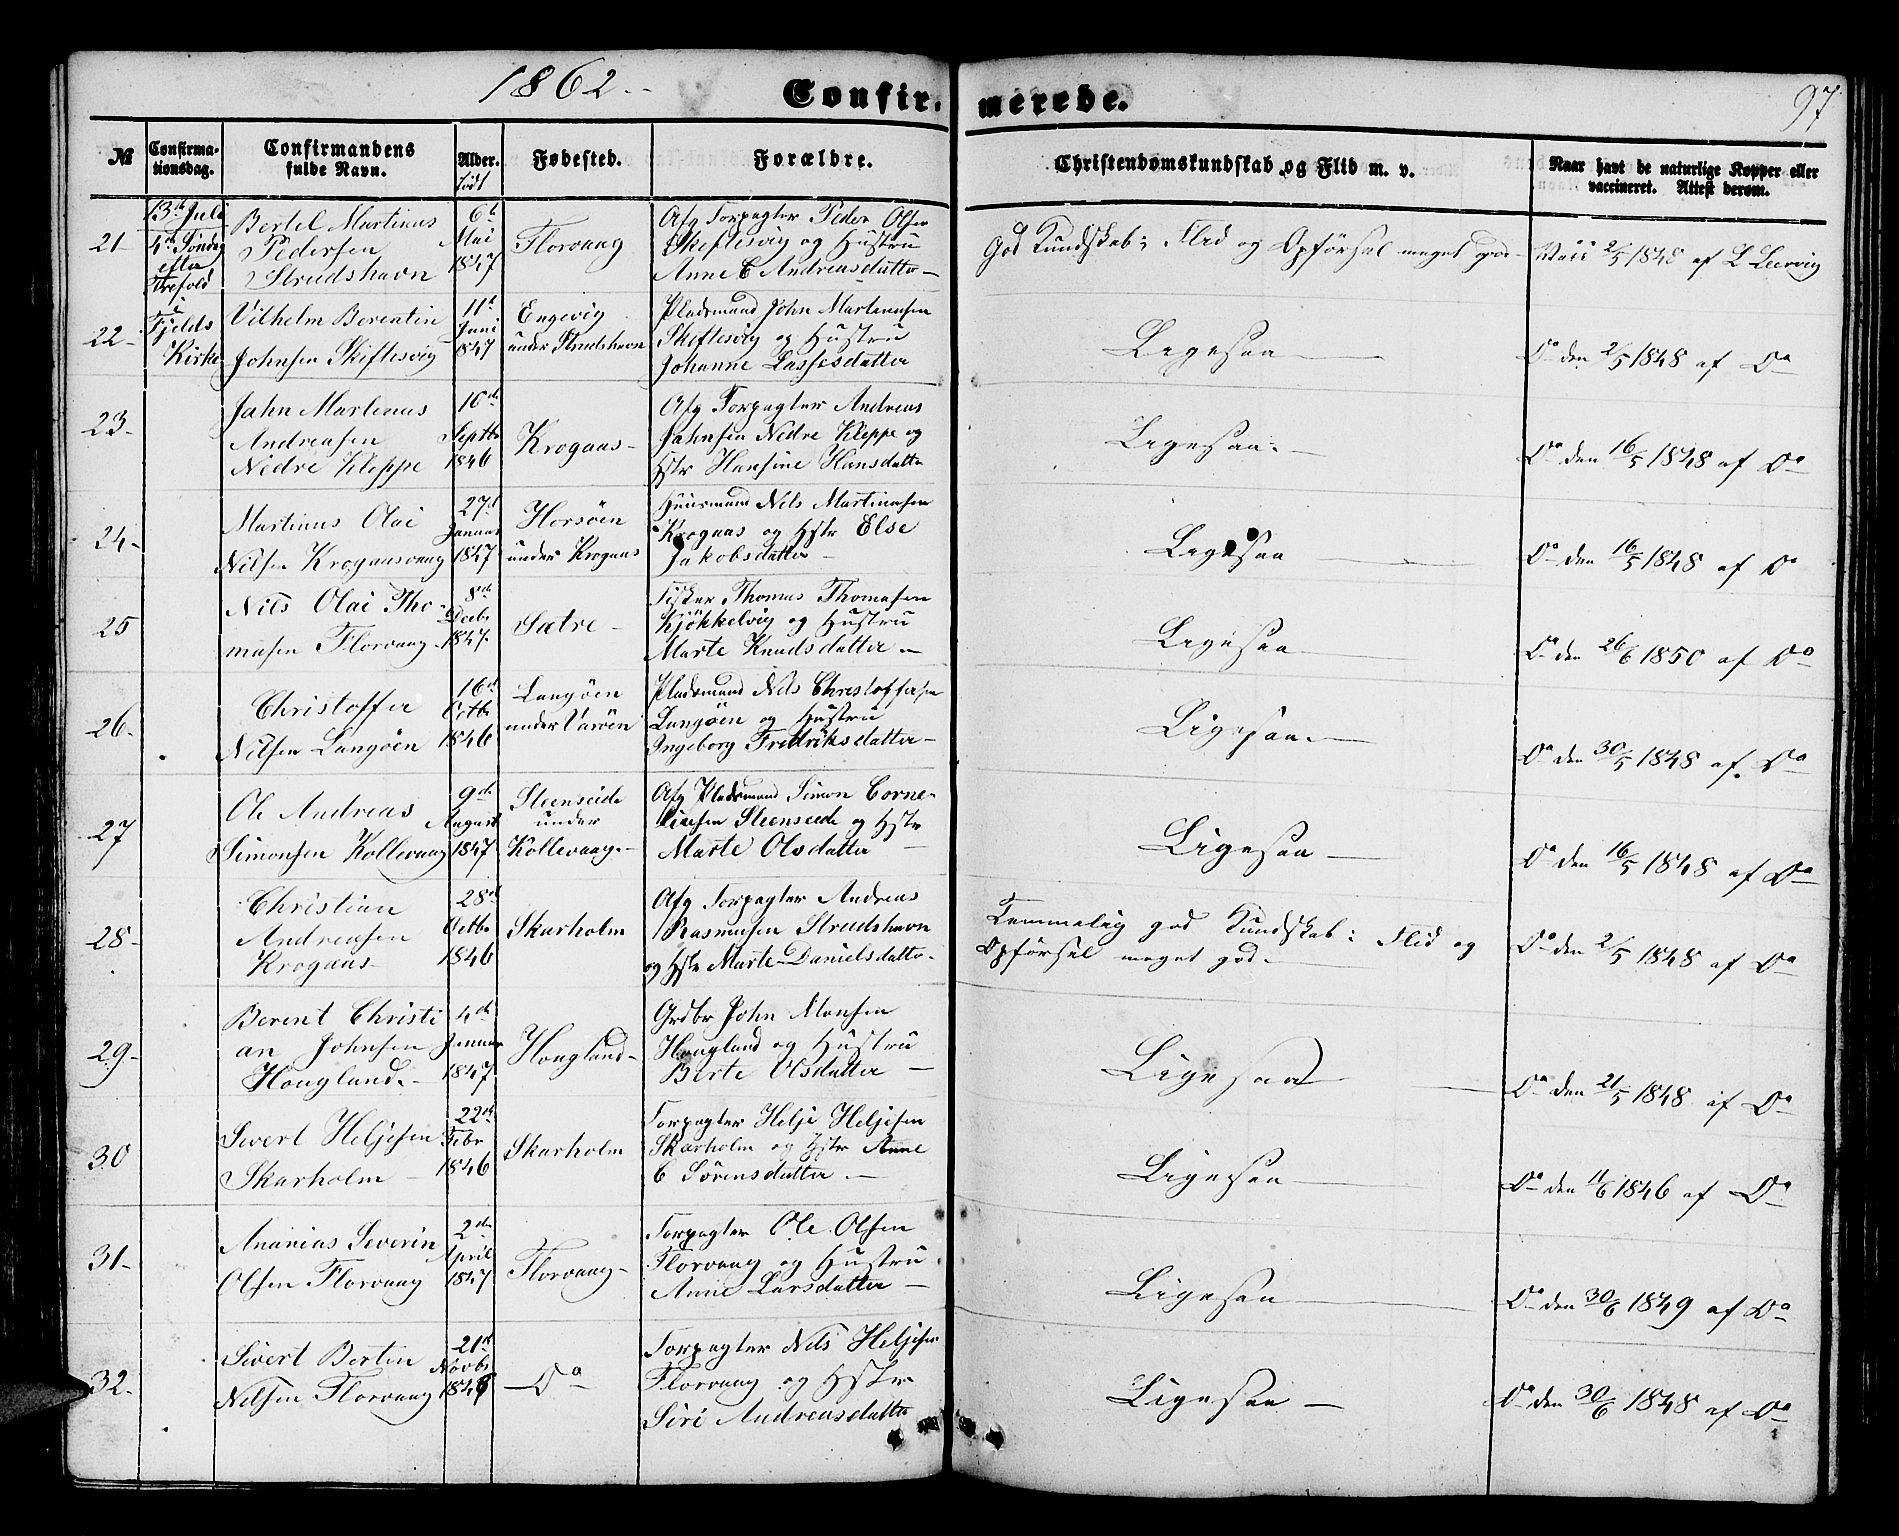 1862. Confir- merede. 97
№ Confirmationsdag. Confirmandens fulde Navn. Alder. födt Fødested. Forældre. Christendomskundskab og Flid m. v. Naar havt de naturlige Kopper eller vaccineret. Attest derom.
13de Juli
4de Söndag
efter
Trefold
i
Fjelds
Kirke
21-
Bertel Martinus
Pedersen
Strudshavn
6te
Mai
1847
Florvaag
Afg Forpagter Peder Olsen
Skiftesvig og Hustru
Anne C Andreasdatter-
God Kundskab; Flid og Opförsel meget god-
Vacc 2/5 1848 af L Leervig
22-
Vilhelm Berentin
Johnsen Skiftesvig
11te
Juni
1847
Engevig
under Strudshavn
Pladsmand John Martinusen
Skiftesvig og Hustru
Johanne Lassesdatter
Ligesaa
Do den 2/5 1848 af Do
23-
Jahn Martinus
Andreasen
Nedre Kleppe
10de
Septbr
1846
Krogaas-
Afg Forpagter Andreas
Jahnsen Nedre Kleppe og
Hstr Hansine Hansdatter
Ligesaa.
Do den 16/5 1848 af Do
24-
Martinus Olai
Nilsen Krogaasvaag
27de
Januar
1847
Horsöen
under Krogaas
Huusmand Nils Martinusen
Krogaas og Hstr Else
Jakobsdatter
Ligesaa
Do den 16/5 1848 af Do
25
Nils Olai Tho-
masen Florvaag.
8de
Decbr
1847.
Sætre-
Fisker Thomas Thomasen
Kjökkelvig og Hustru
Marte Knudsdatter-
Ligesaa
Do den 26/6 1850 af Do
26-
Christoffer
Nilsen Langöen
16de
Octbr
1846
Langöen
under Varöen
Pladsmand Nils Christoffersen
Langöen og Hustru
Ingeborg Fredriksdatter-
Ligesaa.
Do den 30/5 1848 af. Do
27
Ole Andreas
Simonsen Kollevaag
9de
August
1847
Steenseide
under
Kollevaag.-
Afg Pladsmand Simon Corne-
liusen Steenseide og Hstr
Marte Olsdatter
Ligesaa
Do den 16/5 1848 af Do
28-
Christian
Andreasen
Krogaas
28de
Octbr
1846
Skarholm
Afg Forpagter Andreas
Rasmusen Strudshavn
og Hstr Marte Danielsdatter.
Temmelig god Kundskab: Flid og
Opförsel meget god.-
Do den 2/5 1848 af Do
29-
Berent Christi
an Johnsen
Hougland.-
4de
Januar
1847
Hougland-
Grdbr John Monsen
Hougland og Hustru
Berte Olsdatter
Ligesaa
Do den 21/5 1848 af Do
30
Sivert Heljesen
Skarholm
22de
Febr
1846
Skarholm
Forpagter Helje Heljesen
Skarholm og Hstr Anne
C Sörensdatter.-
Ligesaa
Do den 11/6 1846 af Do
31-
Ananias Severin
Olsen Florvaag
2de
April
1847
Florvaag-
Forpagter Ole Olsen
Florvaag og Hustru
Anne Larsdatter
Ligesaa
Do den 30/6 1849 af Do
32.
Sivert Bertin
Nilsen Florvaag
21de
Novbr
1846
Do
Forpagter Nils Heljesen
Florvaag og Hstr
Siri Andreasdatter
Ligesaa
Do den 30/6 1848 af Do